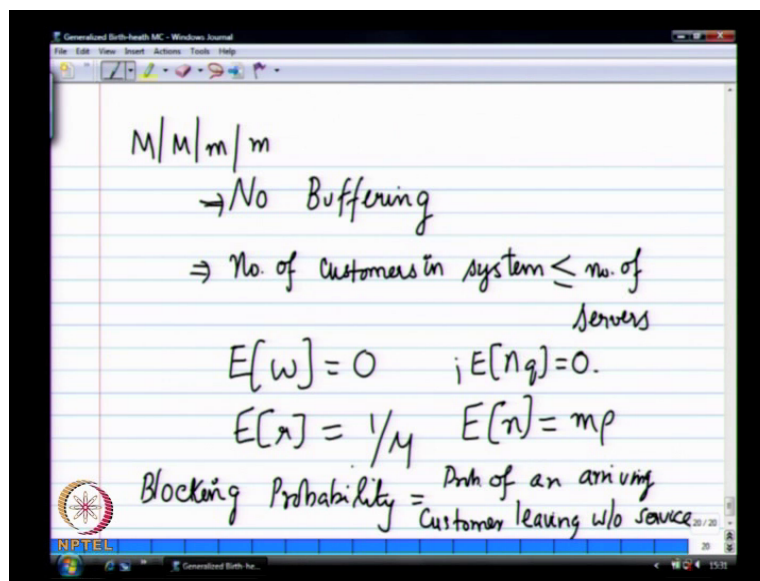 Generalized Birth-heath MC - Windows Journal
File Edit View Insert Actions Tools Help
M/M/m/m
→ No Buffering
⇒ No. of customers in system ≤ no. of
servers
E[w] = 0 ; E[nq] = 0.
E[r] = 1/μ E[n] = mρ
Blocking Probability = Prob of an arriving
customer leaving w/o service
20 / 20
NPTEL
20
Generalized Birth-he...
15:31